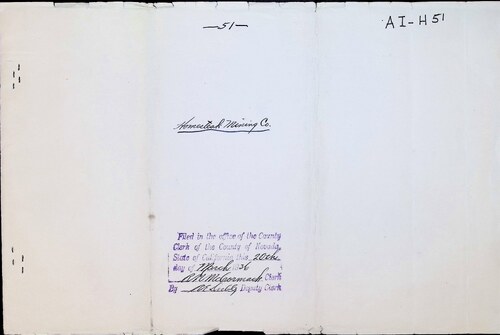 —51—
AI-H51
Homesteak Mining Co.
Filed in the office of the County
Clerk of the County of Nevada,
State of California this 20th
day of March 1936
R. N. McCormack Clerk
By Deputy Clerk